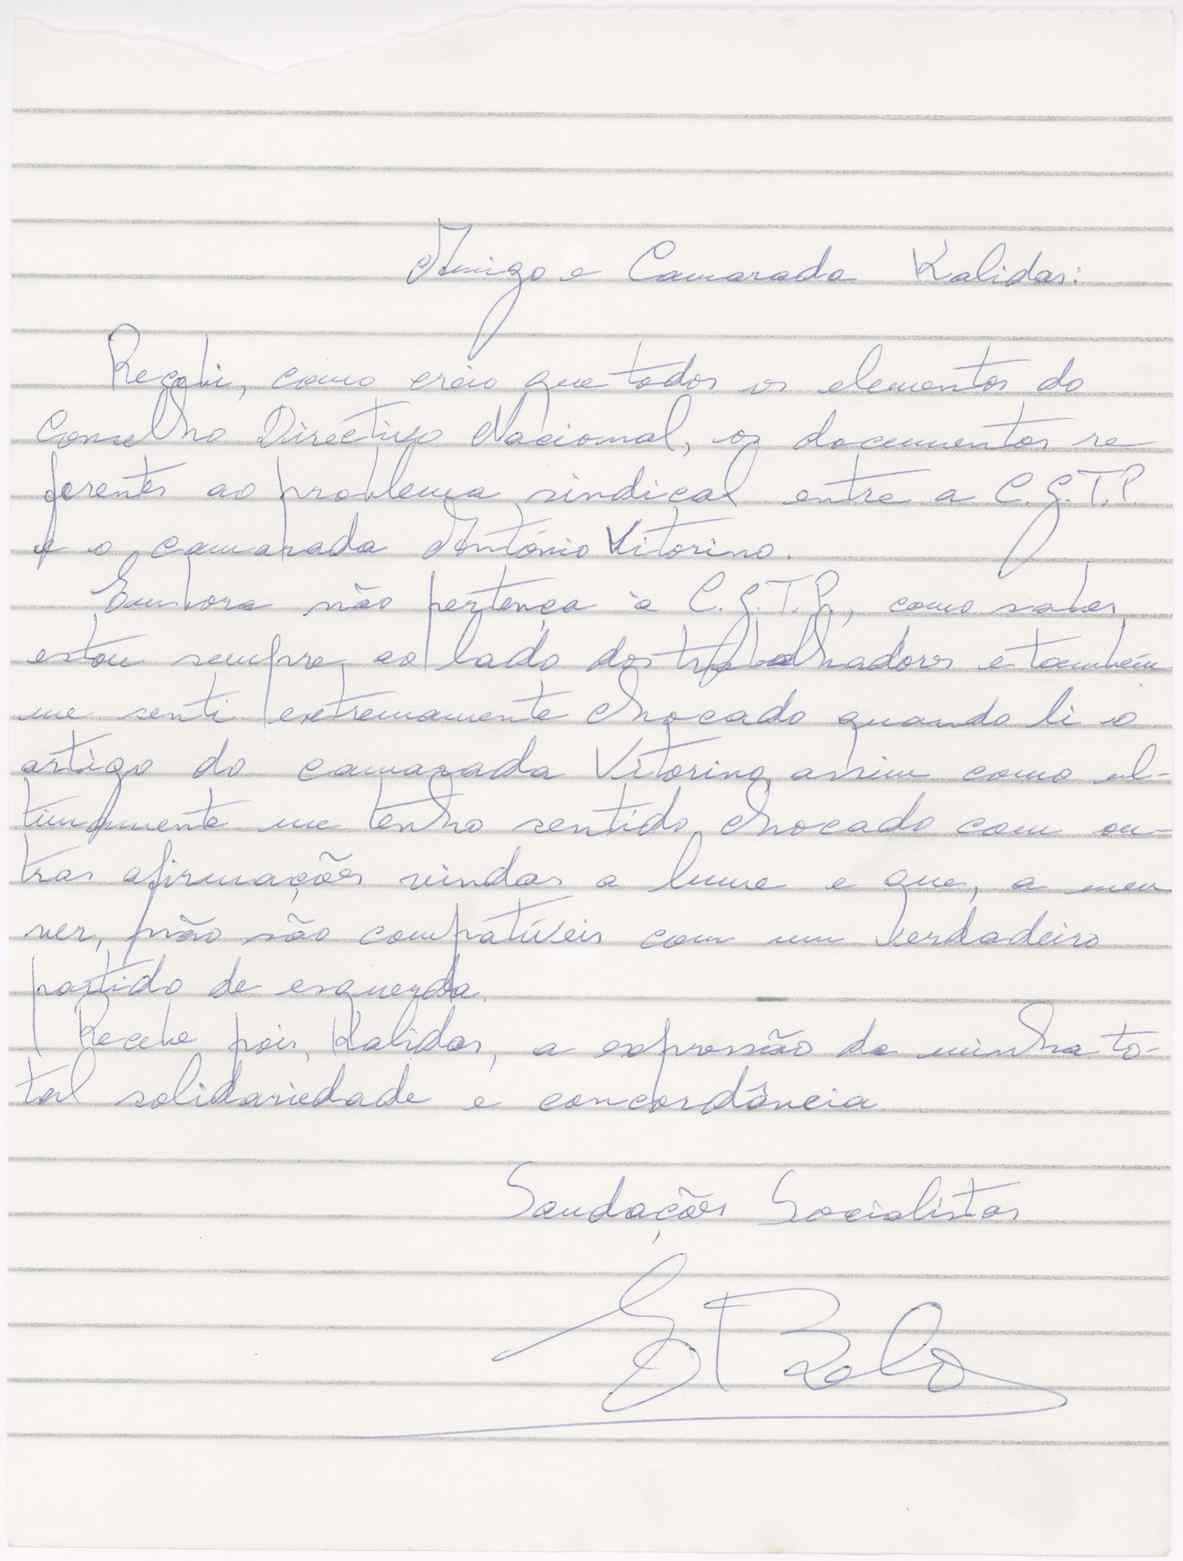 Amigo e Camarada Kalidas:
Recebi, como creio que todos os elementos do
Conselho Directivo Nacional, os documentos re-
ferentes ao problema sindical entre a C.G.T.P.
e o camarada António Vitorino.
Embora não pertença à C.G.T.P., como sabes,
estou sempre ao lado dos trabalhadores e também
me senti extremamente chocado quando li o
artigo do camarada Vitorino, assim como ul-
timamente me tenho sentido chocado com ou-
tras afirmações vindas a lume e que, a meu
ver, não são compatíveis com um verdadeiro
partido de esquerda.
Recebe pois, Kalidas, a expressão da minha to-
tal solidariedade e concordância.
Saudações Socialistas